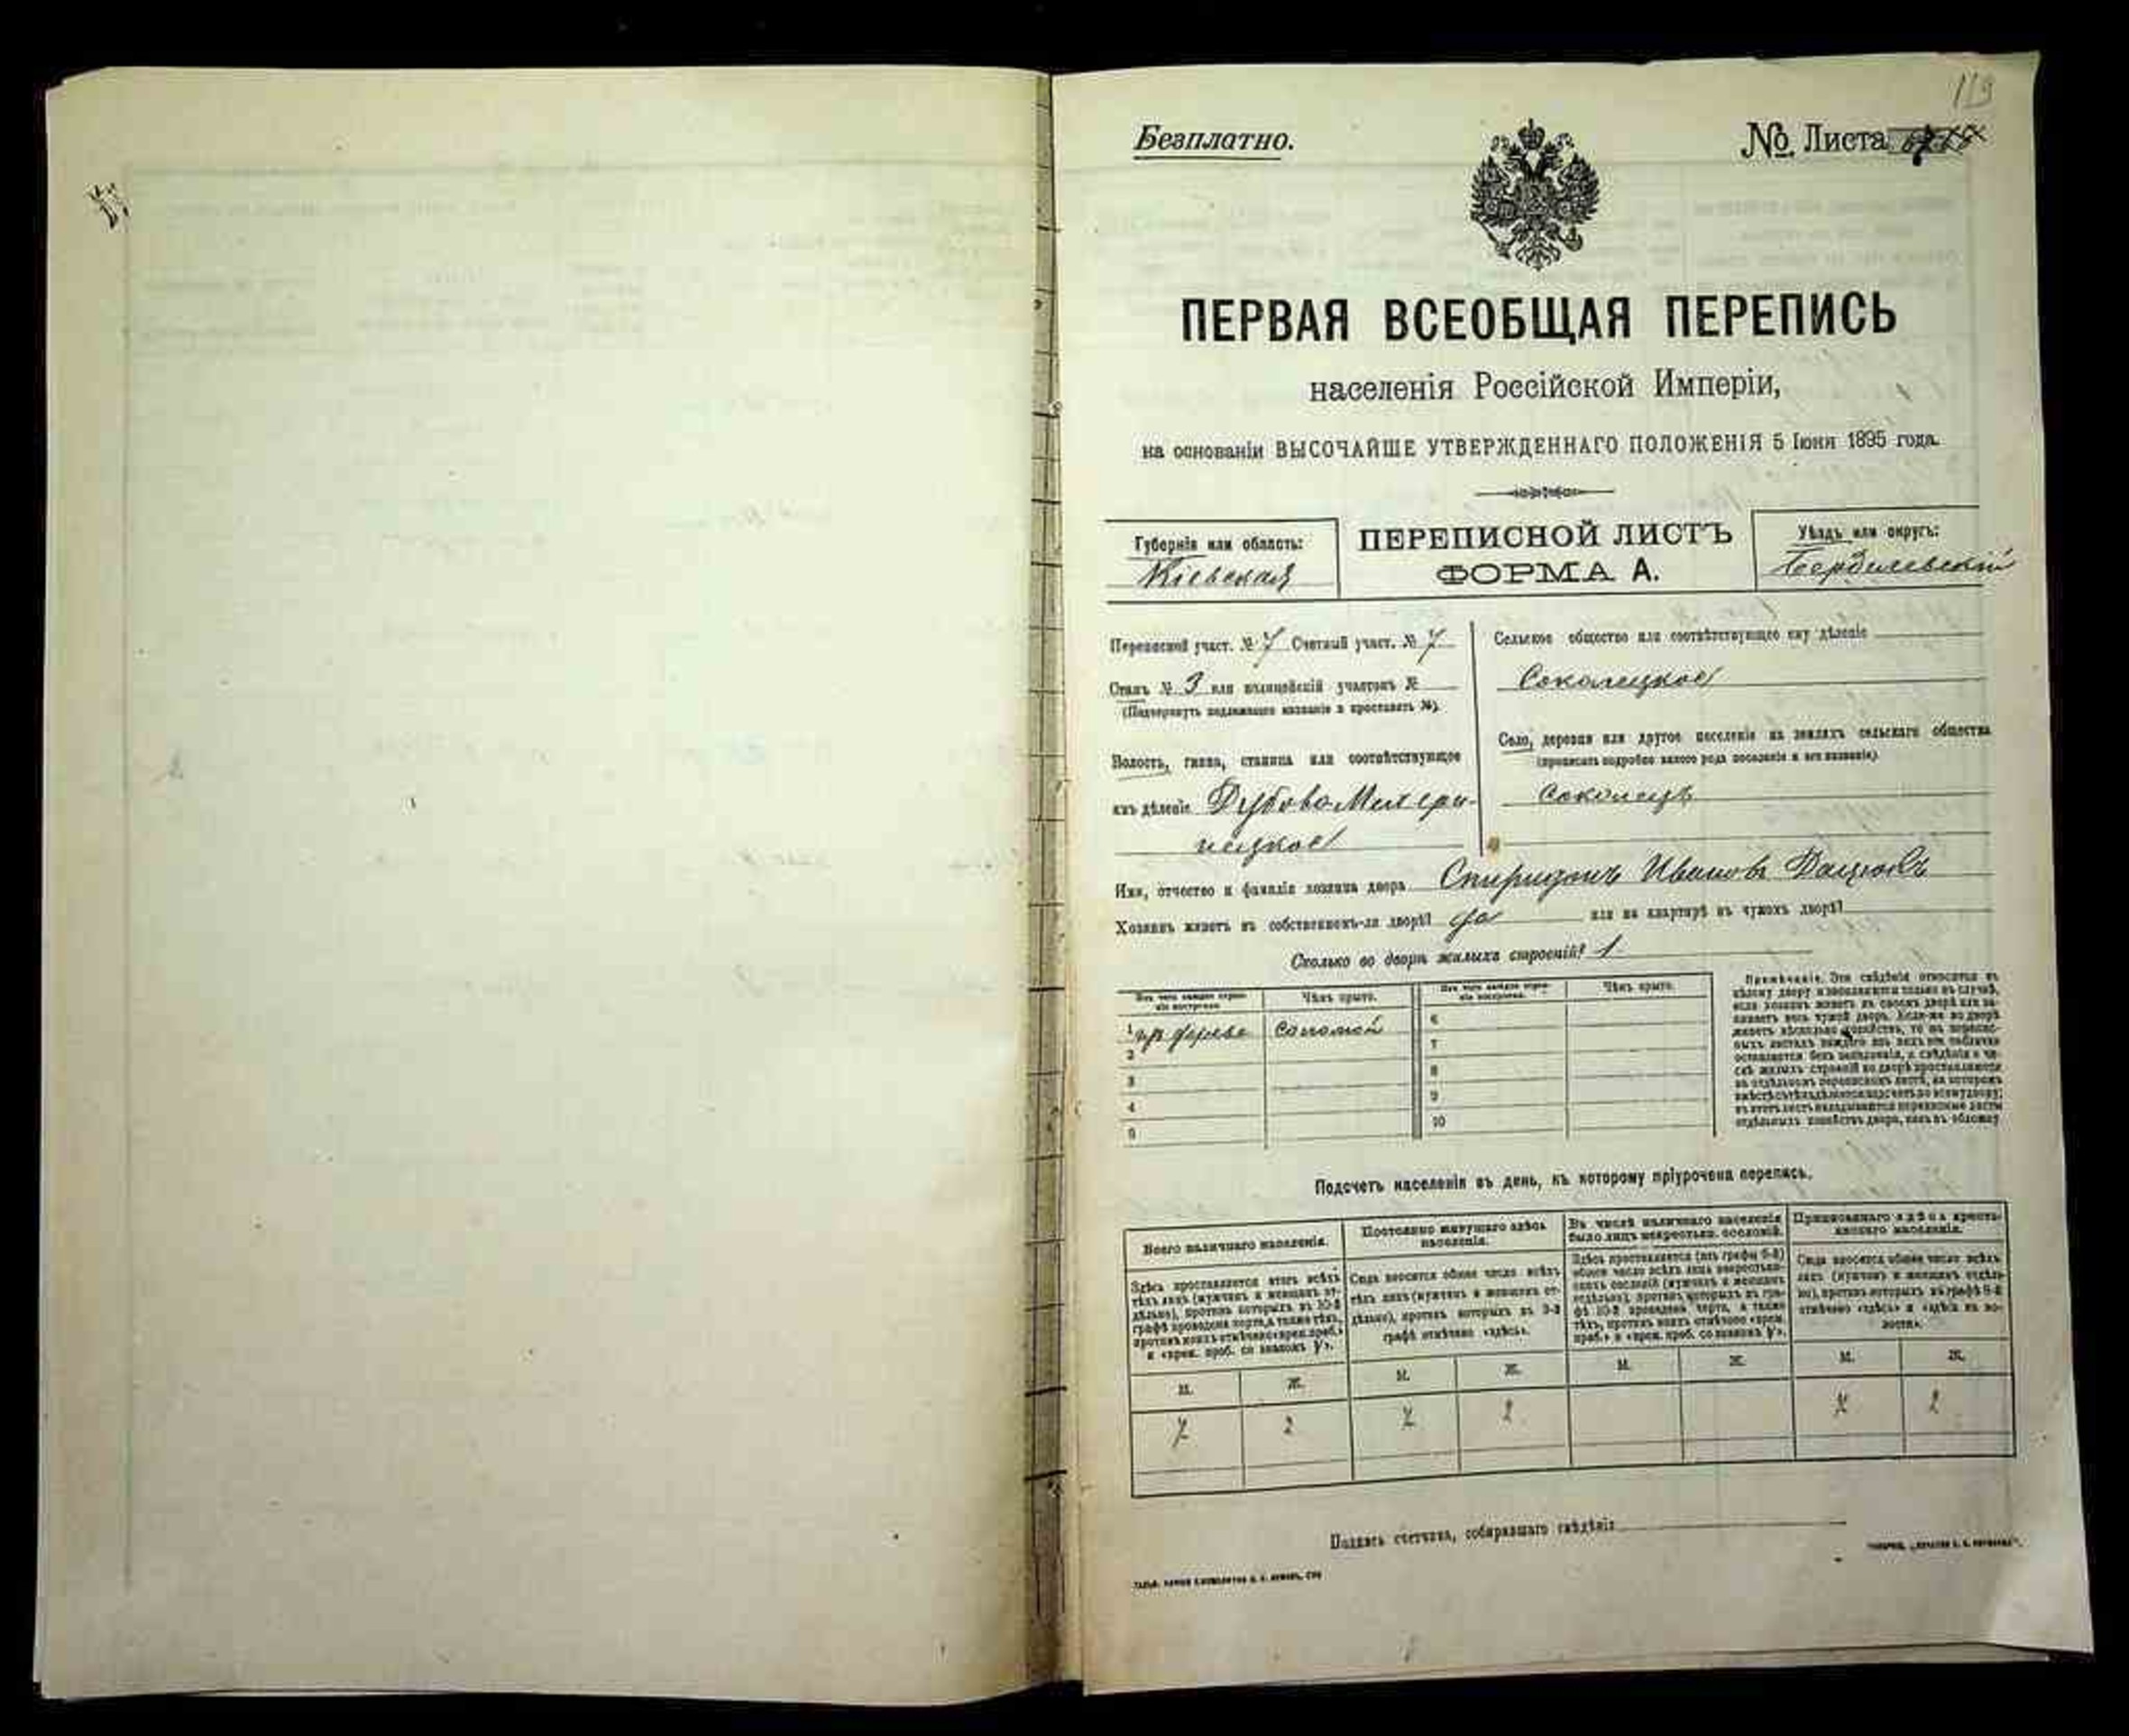 119
Безплатно.
№ Листа
ПЕРВАЯ ВСЕОБЩАЯ ПЕРЕПИСЬ
населенія Россійской Имперіи,
на основаніи ВЫСОЧАЙШЕ УТВЕРЖДЕННАГО ПОЛОЖЕНІЯ 5 Іюня 1895 года.
Губернія или область:
Кіевская
ПЕРЕПИСНОЙ ЛИСТЪ
ФОРМА А.
Уѣздъ или округъ:
Бердичевскій
Переписной участ. № 7 Счетный участ. № 7
Станъ № 3 или полицейскій участокъ №
(Подчеркнуть подлежащее названіе и проставить №).
Волость, гмина, станица или соотвѣтствующее
имъ дѣленіе
Сельское общество или соотвѣтствующее ему дѣленіе
Соколецкое
Село, деревня или другое поселеніе на земляхъ сельскаго общества
(прописать подробно какого рода поселеніе и его названіе).
Соколецъ
Имя, отчество и фамилія хозяина двора Спиридонъ Ивановъ Дацюкъ
Хозяинъ живетъ въ собственномъ-ли дворѣ? да или на квартирѣ въ чужомъ дворѣ?
Сколько во дворѣ жилыхъ строеній? 1
Изъ чего каждое строеніе построено.
Чѣмъ крыто.
Изъ чего каждое строеніе построено.
Чѣмъ крыто.
1 дерева соломой
2
3
4
5
6
7
8
9
10
Примѣчаніе. Эти свѣдѣнія относятся къ
цѣлому двору и заполняются только въ случаѣ,
если хозяинъ живетъ въ своемъ дворѣ или за-
нимаетъ весь чужой дворъ. Если-же во дворѣ
живетъ нѣсколько хозяйствъ, то въ перепис-
ныхъ листахъ каждаго изъ нихъ эти таблички
оставляются безъ заполненія, а свѣдѣнія о чи-
слѣ жилыхъ строеній во дворѣ проставляются
въ отдѣльномъ переписномъ листѣ, на которомъ
Подсчетъ населенія въ день, къ которому пріурочена перепись.
Всего наличнаго населенія.
Здѣсь проставляется итогъ всѣхъ
тѣхъ лицъ (мужчинъ и женщинъ от-
дѣльно), противъ которыхъ въ 10-й
графѣ проведена черта, а также тѣхъ,
противъ коихъ отмѣчено «врем. преб.»
и «врем. проб. со знакомъ V».
Постоянно живущаго здѣсь
населенія.
Сюда вносится общее число всѣхъ
тѣхъ лицъ (мужчинъ и женщинъ от-
дѣльно), противъ которыхъ въ 9-й
графѣ отмѣчено «здѣсь».
Въ числѣ наличнаго населенія
было лицъ некрестьян. сословій.
Приписаннаго здѣсь кресть-
янскаго населенія.
Сюда вносится общее число всѣхъ
лицъ (мужчинъ и женщинъ отдѣль-
но), противъ которыхъ въ графѣ 8-й
отмѣчено «здѣсь» и «здѣсь въ во-
лости».
М. Ж. М. Ж. М. Ж. М. Ж.
7 2 7 2 7 2
Подпись счетчика, собиравшаго свѣдѣнія